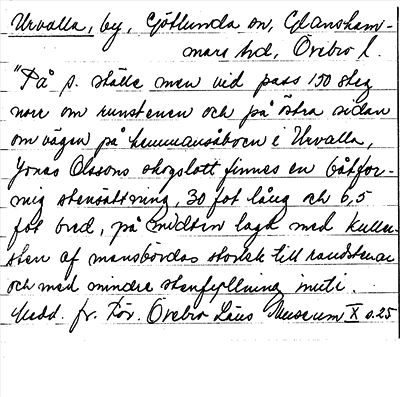 Urvalla, by, Götlunda sn, Glansham-
mars hd, Örebro l.
"På s. ställe men vid pass 150 steg
norr om runstenen och på östra sidan
om vägen på hemmansåboen i Urvalla,
Jonas Olssons skogslott finnes en båtfor-
mig stensättning, 30 fot lång och 6,5
fot bred, på midten lagd med kuller-
sten af mansbördas storlek till randstenar
och med mindre stenfyllning inuti.
Medd. fr. För. Örebro Läns Museum X s. 25